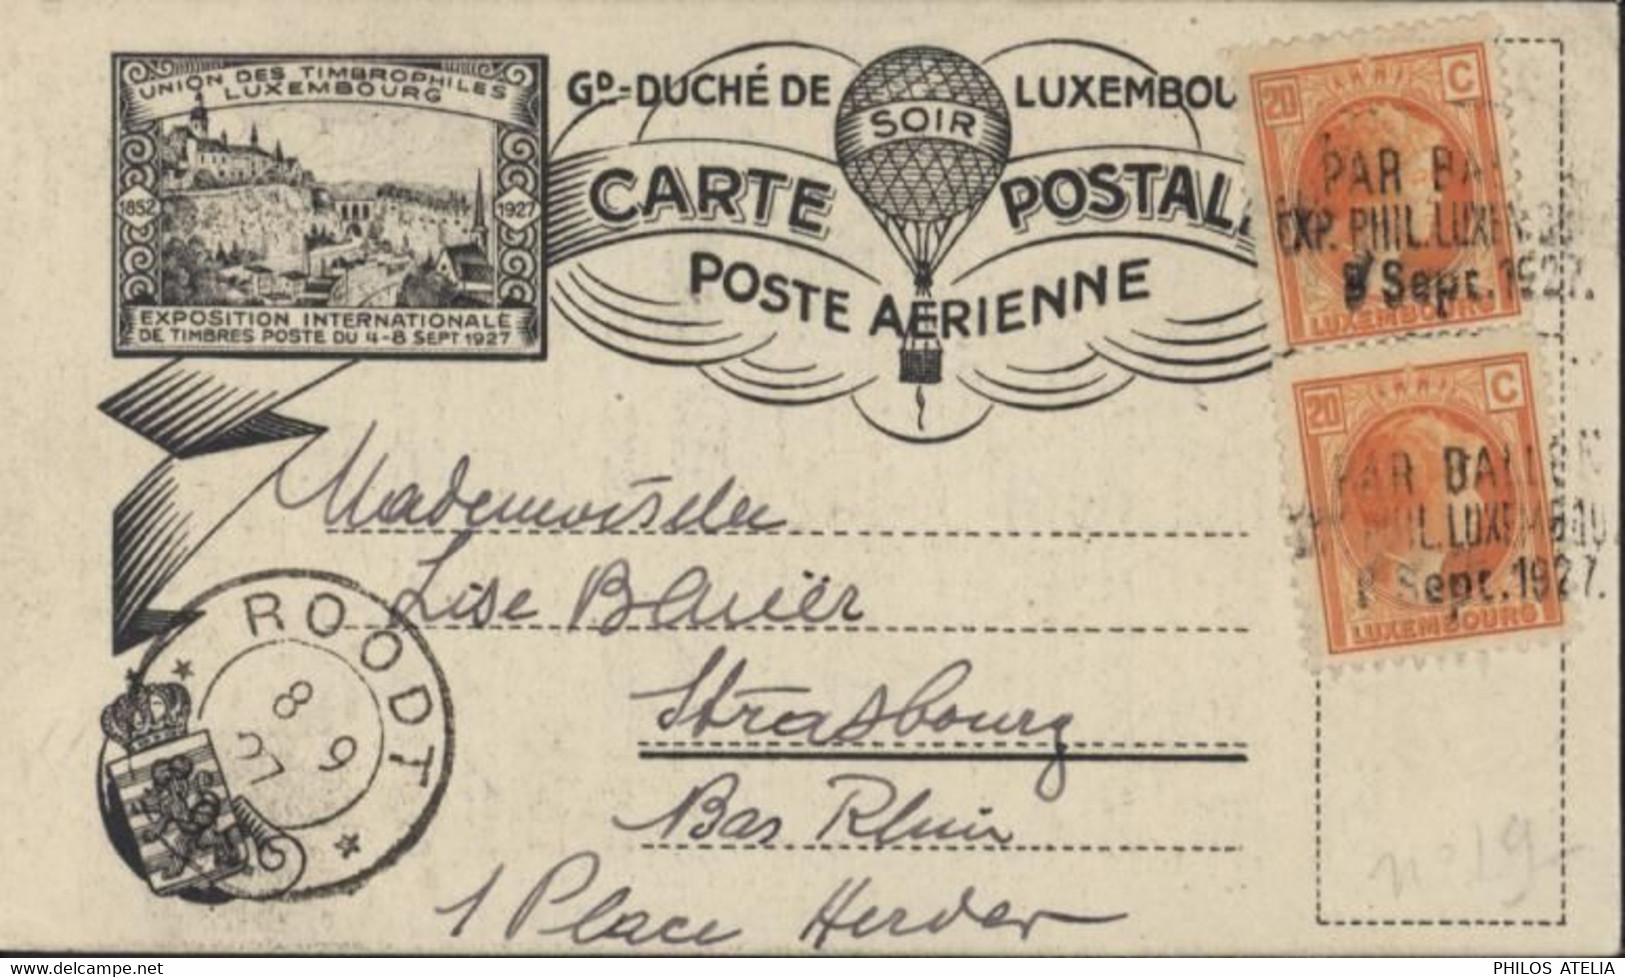 UNION DES TIMBROPHILES
LUXEMBOURG
1852
1927
EXPOSITION INTERNATIONALE
DE TIMBRES POSTE DU 4-8 SEPT 1927
GD-DUCHÉ DE LUXEMBOU
SOIR
CARTE POSTALE
POSTE AÉRIENNE
20 C
PAR BAL
EXP. PHIL. LUXEMBOU
Sept. 1927.
LUXEMBOURG
20 C
PAR BALLON
PHIL. LUXEMBOU
Sept. 1927.
LUXEMBOURG
Mademoiselle
Lise
Strasbourg
Bas Rhin
1 Place Herder
ROODT
8 9
27
n° 19
PHILOS ATELIA